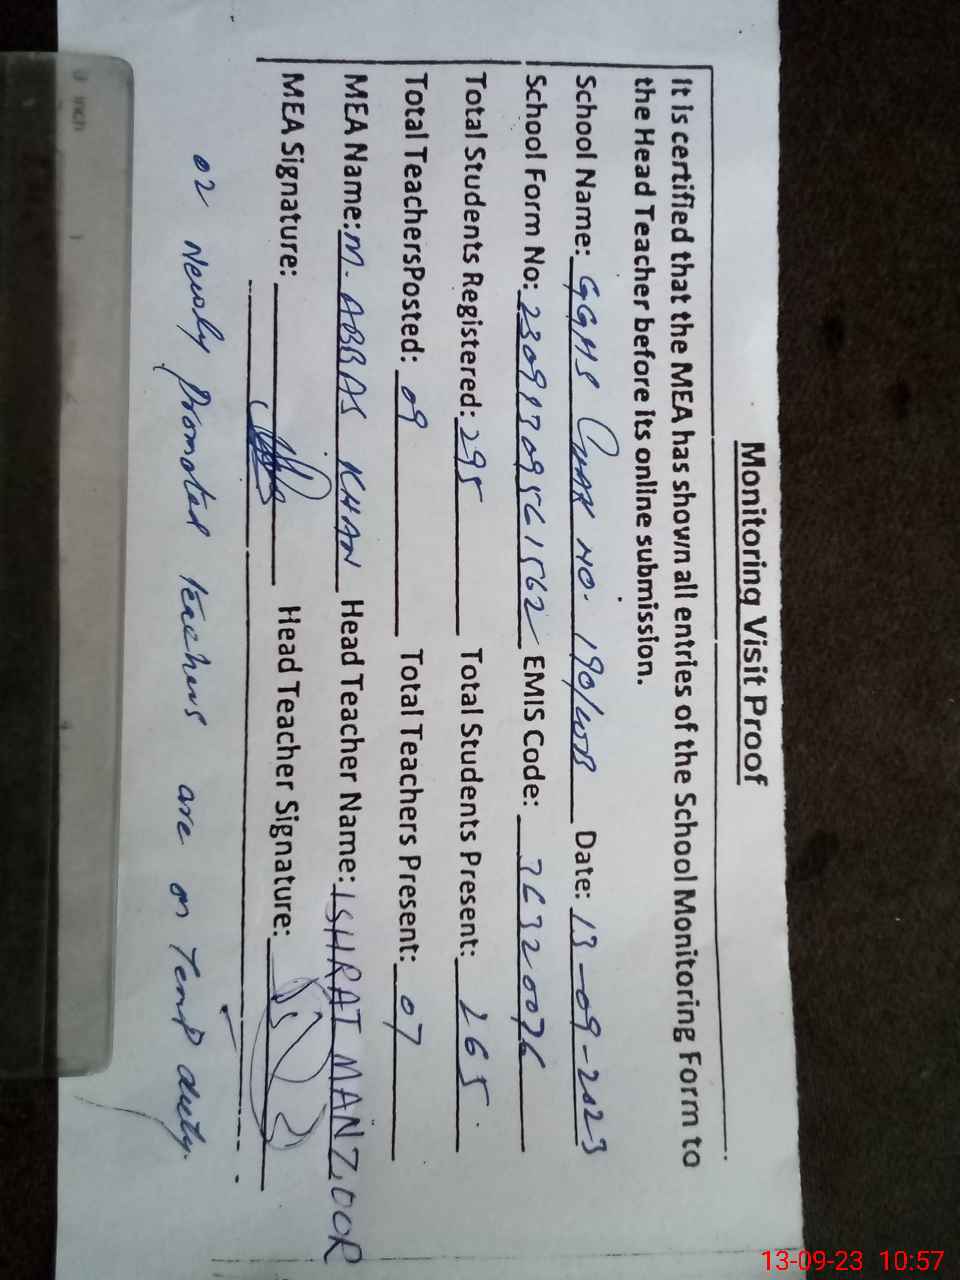 Monitoring Visit Proof
It is certified that the MEA has shown all entries of the School Monitoring Form to
the Head Teacher before its online submission.
School Name: GGHS Chak NO. 190/WB Date: 13-09-2023
School Form No: EMIS Code: 36320076
Total Students Registered: 295 Total Students Present: 265
Total TeachersPosted: 09 Total Teachers Present: 07
MEA Name: M. ABBAS KHAN Head Teacher Name: ISHRAT MANZOOR
MEA Signature: Head Teacher Signature:
02 Newly Promoted teachers are on Temp duty.
inch
13-09-23 10:57